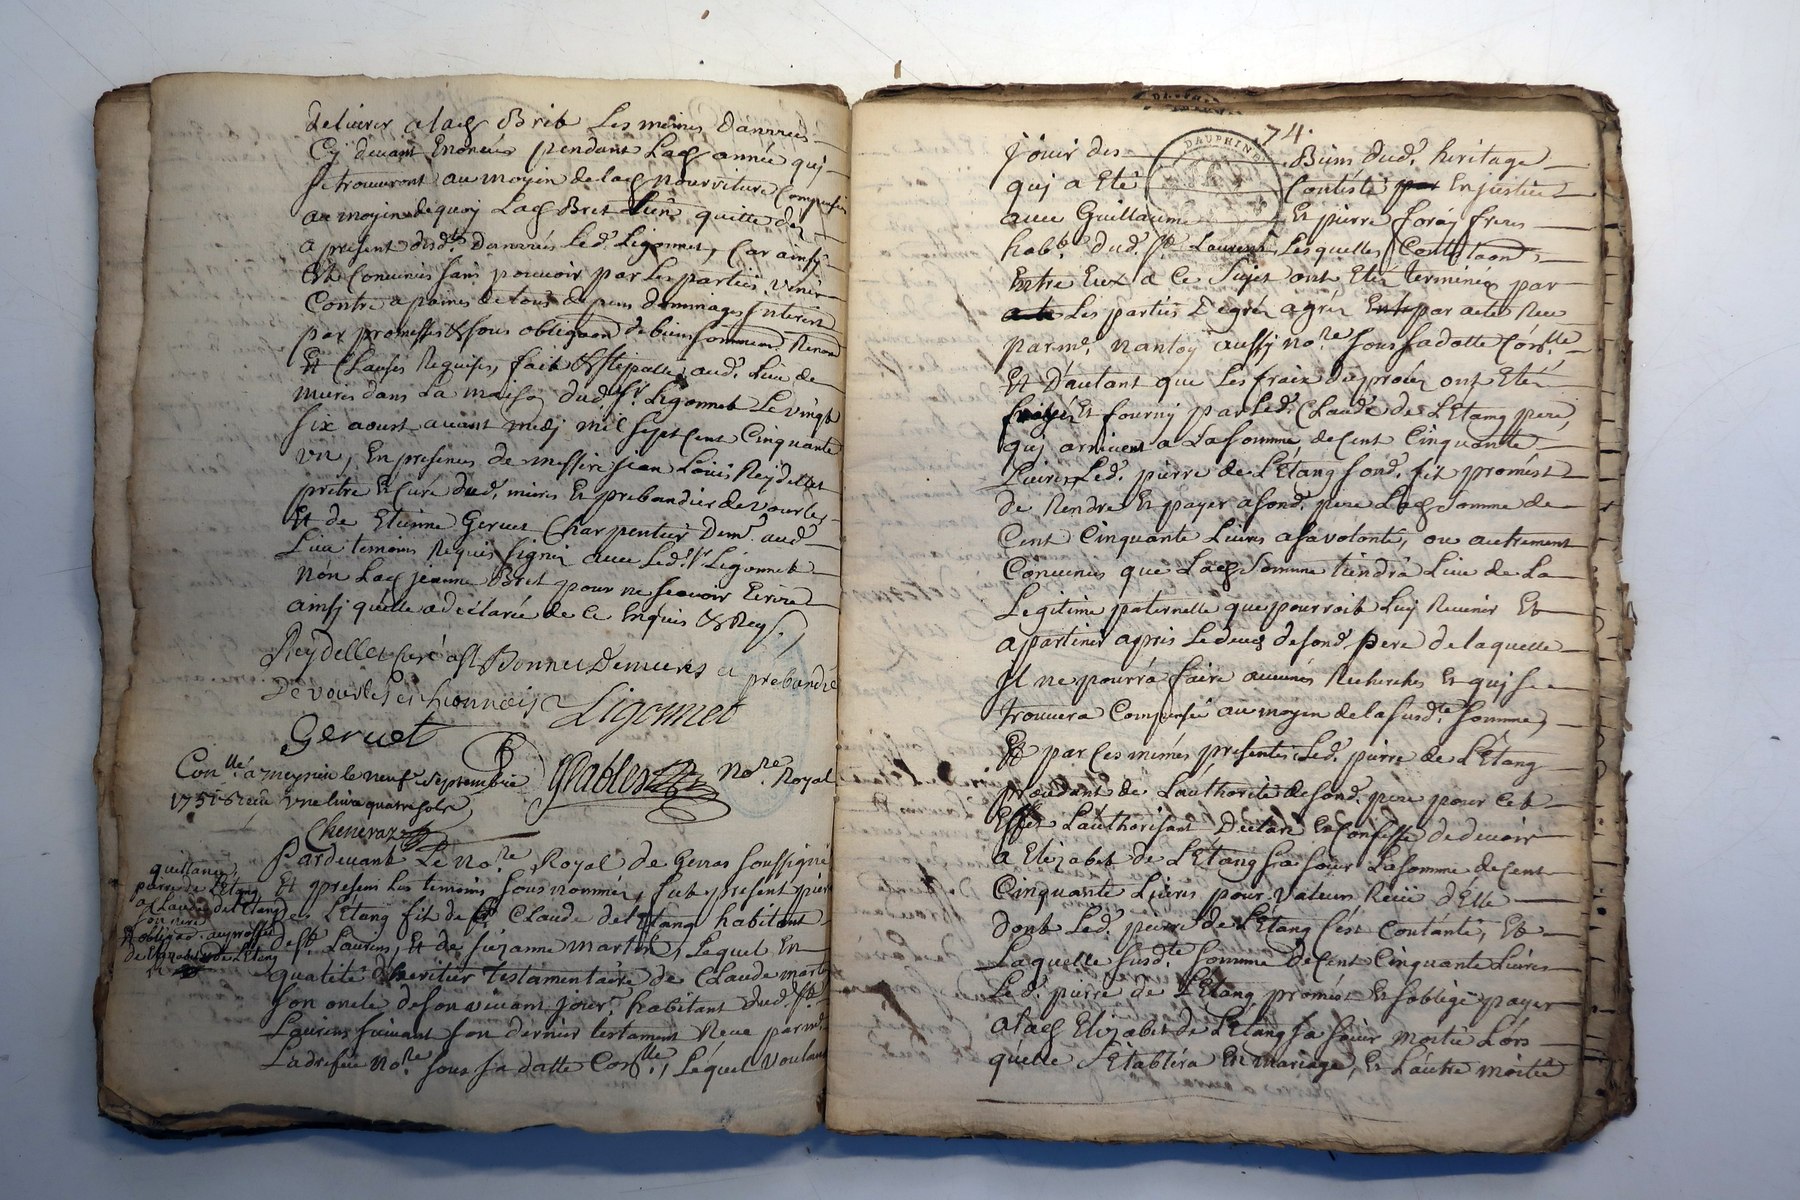 delivrer a lad Bret Les mêmes dánnrées
Cy devant Enoncées pendant Lad année quj
se trouveront au moyen de lad nourriture Compensées
au moyen de quoy Lad Bret tient quitte dez
a present desd.tes dánnrées Led.t Ligonnet, Car ainsy
Est Convenus sans pouvoir par Les parties venir
Contre a paines de tous depens dommages Interest
par promesses & sous obligaon de biens soumissions Renon
Et Clauses Requises, fait & stipulle aud. Lieu de
mieres dans La maison dud. Sr. Ligonnet Le vingt
six aoust avant midj mil sept Cent Cinquante
un, En presences de messire Jean Louis Reydellet
pretre & Curé dud. mieres Et prebandier de vourles
Et de Etienne Geruet Charpentier dem.t aud.
Lieu temoins Requis signés avec Led. Sr. Ligonnet
non Lad jeanne Bret pour ne sçavoir Ecrire
ainsj qu'elle a déclarée de Ce Enquis & Req.
Reydellet Curé de St Bonnet De mieres et prébandié
De vourles en Lionnois
Ligonnet
Geruet
Con.llé a meyrieu le neuf septembre
1751 Reçu une livre quatre sols
Cheneraz
no.re Royal
Pardevant Le No.re Royal de Genas soussigné
Et presens Les temoins sous nommés, fut present pierre
des L'Etang fils de Sr. Claude de L'Etang habitant
de St. Laurens, Et de suzanne martin, Lequel En
qualité d'heritier testamentaire de Claude martin
son oncle de son vivant jour.r habitant dud. St.
Laurens suivant son dernier testament Reçu par me.
Ladresée No.re sous sa datte Con.llé, Lequel voulant
quittance
pierre de L'Etang
a Claude de L'Etang
son pere
& obligaon au proffit
de Elizabet de L'Etang
74.
DAUPHINE
Jouir des Biens dud. heritage
quj a Eté Contesté par En justice
avec Guillaume Et pierre foréy freres
hab.ts dud. St. Laurens, Lesquelles Contestaons
Entre Eux a Ce sujet ont Etéz terminées par
acte Les parties D'egréz agréz Entr par acte Reçu
par me. nantoy aussj no.re sous sa datte Con.llé
Et D'autant que Les fraix du procez ont Eté
frayéz Et fourny par Led. Claude de L'Etang pere,
quj arrivent a La somme de Cent Cinquante
Livres, Led. pierre de L'Etang sond. fils promest
de Rendre Et payer a sond. pere Lad somme de
Cent Cinquante Livres a sa volonté, ou autrement
Convenus que Lad somme tiendra Lieu de La
Legitime paternelle que pourroit Luy Revenir Et
apartenir après Le deces de sond. pere de laquelle
Il ne pourrá faire aucunes Recherches Et quj se
trouvera Compensée au moyen de la susd.te somme,
Et par Ces mêmes presentes Led. pierre de L'Etang
procedant de L'authorité de sond. pere pour Cet
Effet L'authorisant Déclare Et Confesse de devoir
a Elizabet de L'Etang sa sœur La somme de Cent
Cinquante Livres pour valeur Reçüe d'Elle
dont Led. pierre de L'Etang s'est Contánté, Et
Laquelle susd.te somme de Cent Cinquante Livres
Led. pierre de L'Etang promest Et s'oblige payer
a lad Elizabet de L'Etang sa sœur moitié Lors
quelle s'Etablira En mariage, Et L'autre moitié